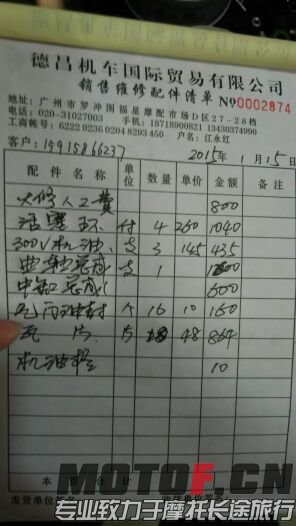 德昌机车国际贸易有限公司
销售维修配件清单 №0002874
地址：广州市罗冲围福星摩配市场D区27-28档
电话：020-31027003 手机：18718900821 13430374990
工商帐号：6222 0236 0204 8293 450 户名：江永红
客户：15915866237 2015年1月15日
配件名称 单位 数量 单价 金额 备注
大修人工费 800
活塞环 付 4 260 1040
300V机油 支 3 145 435
曲轴总成 支 1
中缸总成 600
气门油封 个 16 10 160
瓦片 18 48 864
机油格 10
本页合计
发货单位签名
MOTOF.CN
专业致力于摩托长途旅行